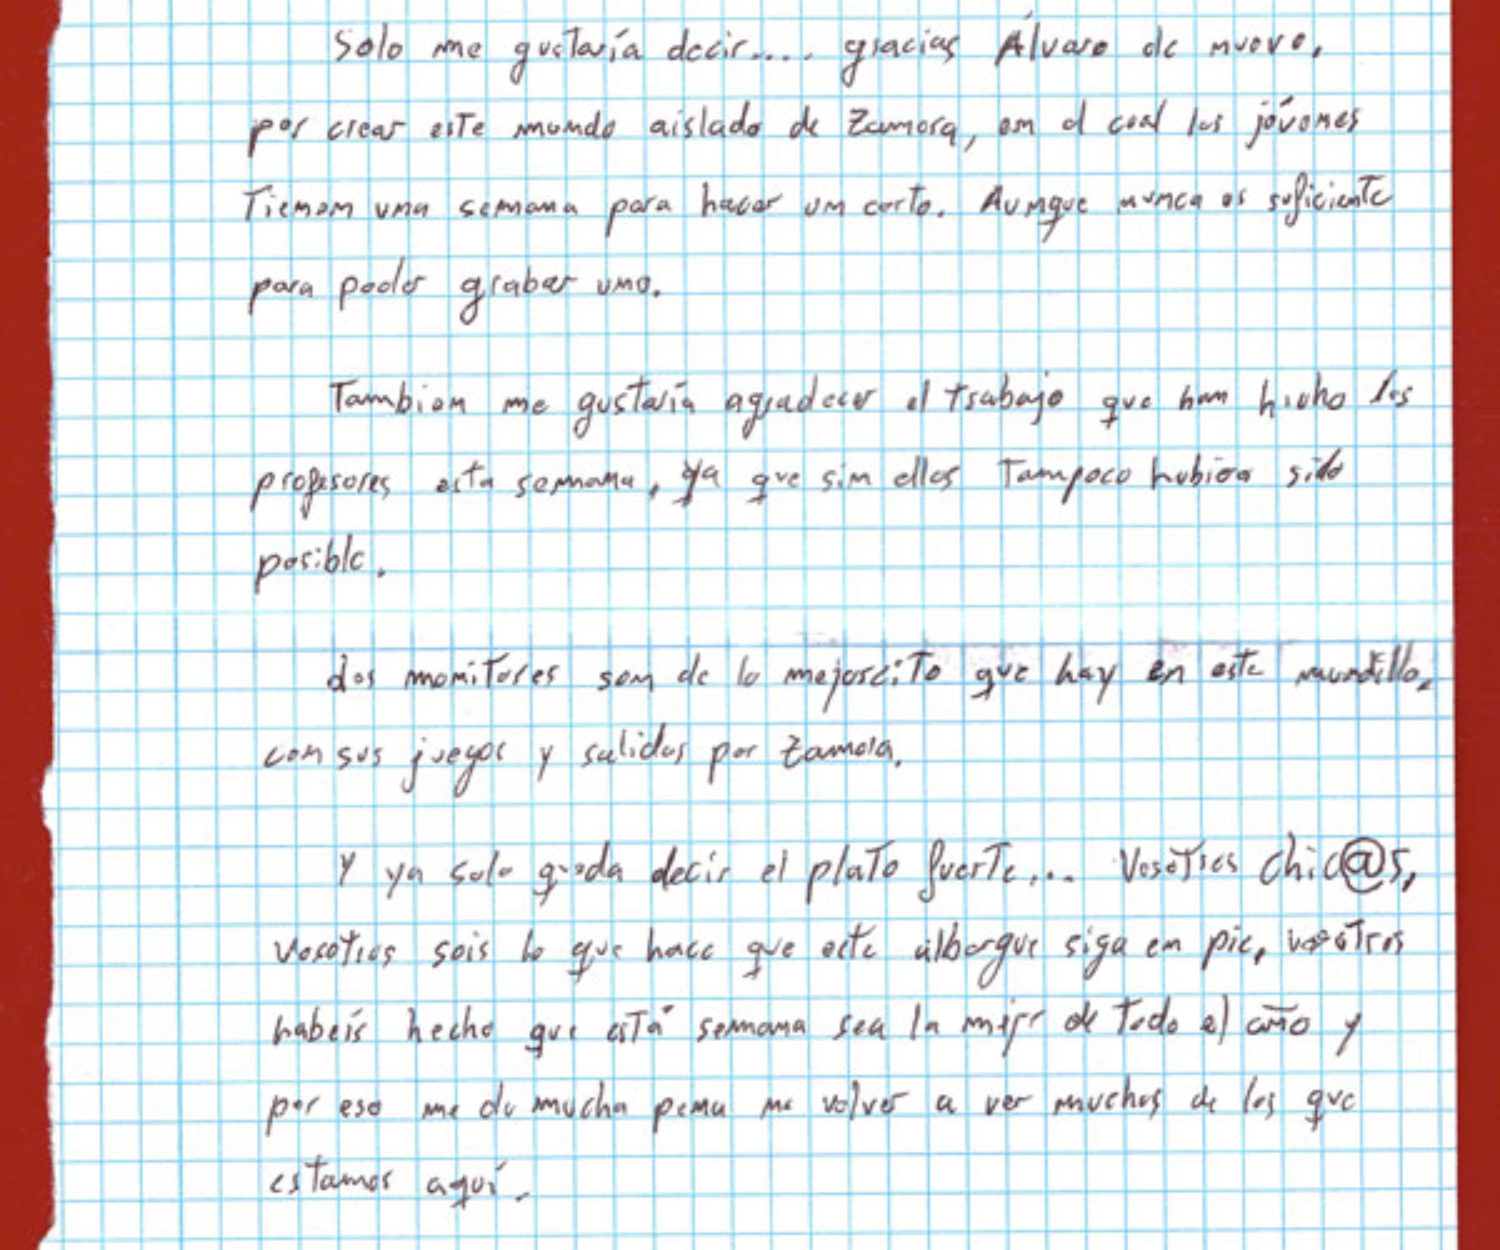 Solo me gustaría decir.... gracias Álvaro de nuevo,
por crear este mundo aislado de Zamora, en el cual los jóvenes
Tienen una semana para hacer un corto. Aunque nunca es suficiente
para poder grabar uno.
Tambien me gustaría agradecer el trabajo que han hecho los
profesores esta semana, ya que sin ellos Tampoco hubiera sido
posible.
Los monitores son de lo mejorcito que hay en este mundillo,
con sus juegos y salidas por Zamora.
Y ya solo queda decir el plato fuerte... Vosotros chic@s,
vosotros sois lo que hace que este albergue siga en pie, vosotros
habeís hecho que está semana sea la mejor de todo el año y
por eso me da mucha pena no volver a ver muchos de los que
estamos aquí.